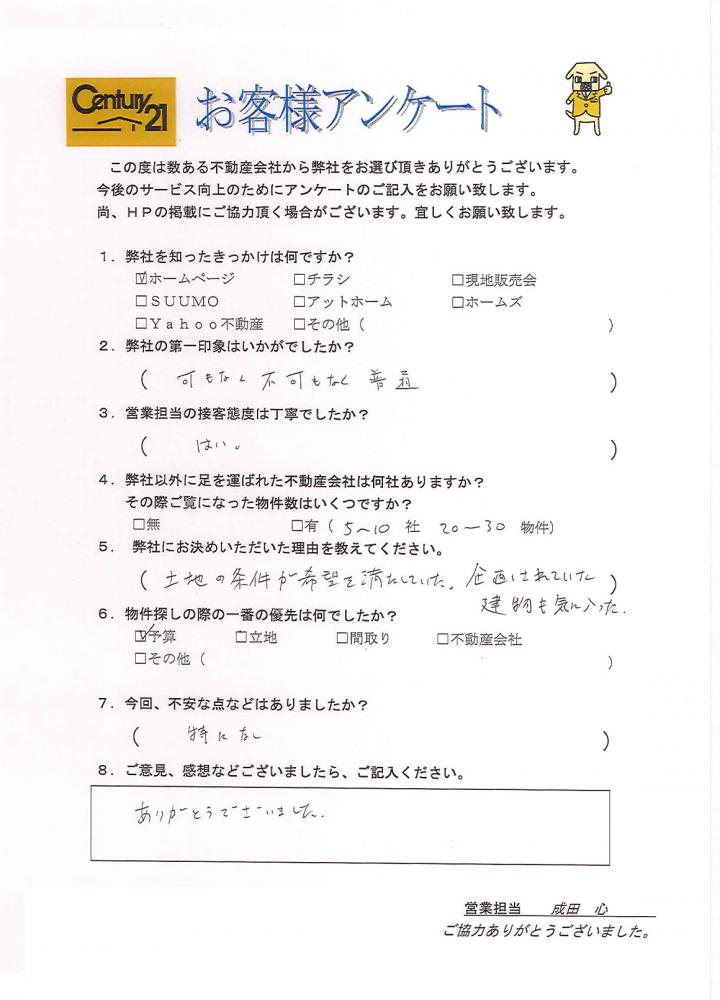 Century 21
お客様アンケート
この度は数ある不動産会社から弊社をお選び頂きありがとうございます。
今後のサービス向上のためにアンケートのご記入をお願い致します。
尚、ＨＰの掲載にご協力頂く場合がございます。宜しくお願い致します。
１．弊社を知ったきっかけは何ですか？
☑ホームページ □チラシ □現地販売会
□ＳＵＵＭＯ □アットホーム □ホームズ
□Ｙａｈｏｏ不動産 □その他（ ）
２．弊社の第一印象はいかがでしたか？
（ 可もなく不可もなく 普通 ）
３．営業担当の接客態度は丁寧でしたか？
（ はい。 ）
４．弊社以外に足を運ばれた不動産会社は何社ありますか？
その際ご覧になった物件数はいくつですか？
□無 □有（ 5～10 社 20～30 物件）
５． 弊社にお決めいただいた理由を教えてください。
（ 土地の条件が希望を満たしていた。企画されていた ）
建物も気に入った.
６．物件探しの際の一番の優先は何でしたか？
☑予算 □立地 □間取り □不動産会社
□その他（ ）
７．今回、不安な点などはありましたか？
（ 特になし ）
８．ご意見、感想などございましたら、ご記入ください。
ありがとうございました.
営業担当 成田 心
ご協力ありがとうございました。